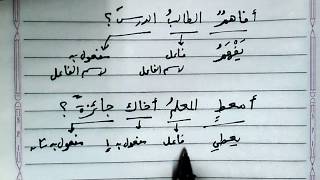 أفاهمٌ الطالبُ الدرسَ ؟
يَفْهَمُ فاعل مفعول به
لاسم الفاعل لاسم الفاعل
أمعطٍ المعلمُ أخاك جائزةً ؟
يعطي فاعل مفعول به ١ مفعول به ثان